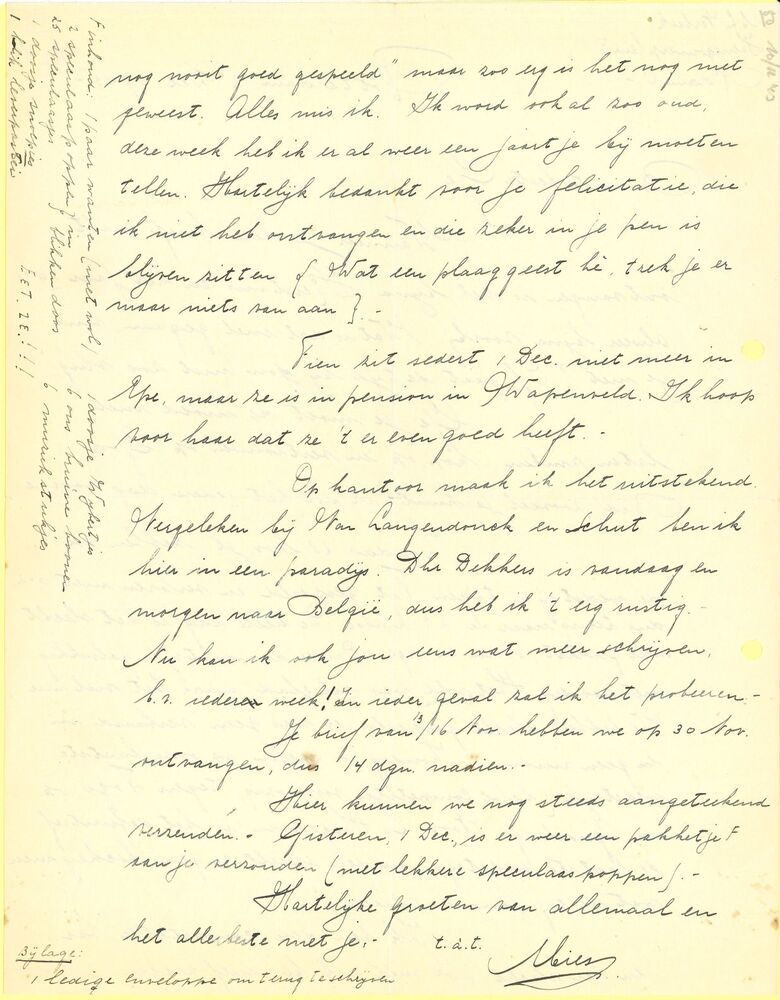 nog nooit goed gespeeld" maar zoo erg is het nog niet
geweest. Alles mis ik. Ik word ook al zoo oud,
deze week heb ik er al weer een jaartje bij moeten
tellen. Hartelijk bedankt voor je felicitatie, die
ik niet heb ontvangen en die zeker in je pen is
blijven zitten { Wat een plaaggeest hè, trek je er
maar niets van aan }.-
Fien zit sedert 1 Dec. niet meer in
Epe, maar ze is in pension in Wapenveld. Ik hoop
voor haar dat ze 't er even goed heeft.-
Op kantoor maak ik het uitstekend.
Vergeleken bij Van Langendonck en Schut ben ik
hier in een paradijs. Dhr Dekkers is vandaag en
morgen naar België, dus heb ik 't erg rustig.-
Nu kan ik ook jou eens wat meer schrijven,
b.v. iedere week! In ieder geval zal ik het probeeren.-
Je brief van 13/16 Nov. hebben we op 30 Nov.
ontvangen, dus 14 dgn. nadien.-
Hier kunnen we nog steeds aangeteekend
verzenden.- Gisteren, 1 Dec., is er weer een pakketje F
aan je verzonden (met lekkere speculaaspoppen).-
Hartelijke groeten van allemaal en
het allerbeste met je.- t.à.t.
Mies
Bijlage:
1 ledige enveloppe om terug te schrijven
F inhoud: 1 paar wanten (met wol) 1 doosje Wybertjes
2 speculaaspoppen } in 6 ons bruine boonen
25 speculaasjes } blikken doos 6 muziekstukjes
1 doosje snoepjes
1 blik leverpastei EET ZE!!!